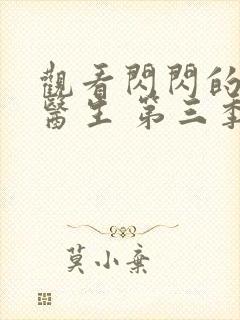 觀看閃閃的
醫生 第三季
莫小棄